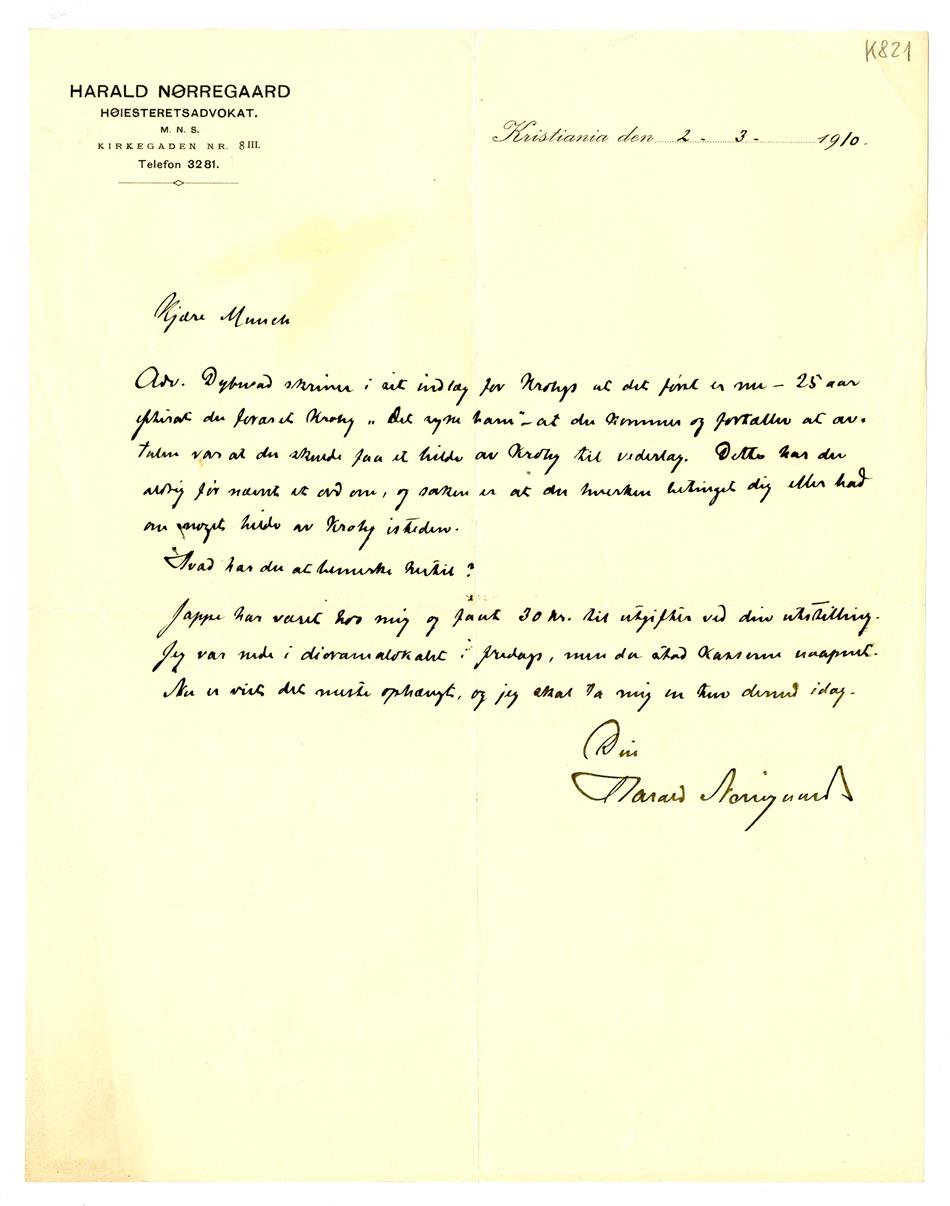 K821
HARALD NØRREGAARD
HØIESTERETSADVOKAT.
M. N. S.
KIRKEGADEN NR. 8 III.
Telefon 3281.
Kristiania den 2 - 3 - 1910.
Kjære Munch
Adv. Dybwad skriver i sit indlæg for Krohg at det først er nu – 25 aar
efterat du foræret Krohg „Det syke barn“ – at du kommer og fortæller at av-
talen var at du skulde faa et billede av Krohg til vederlag. Dette har du
aldrig før nævnt et ord om, og saken er at du hverken betinget dig eller bad
om noget billede av Krohg isteden.
Hvad har du at bemerke hertil?
Jappe har været hos mig og faaet 30 kr. til utgifter ved din utstilling.
Jeg var nede i dioramalokalet i fredags, men da stod kasserne uaapnet.
Nu er vist det meste ophængt, og jeg skal ta mig en tur derned idag.
Din
Harald Nørregaard